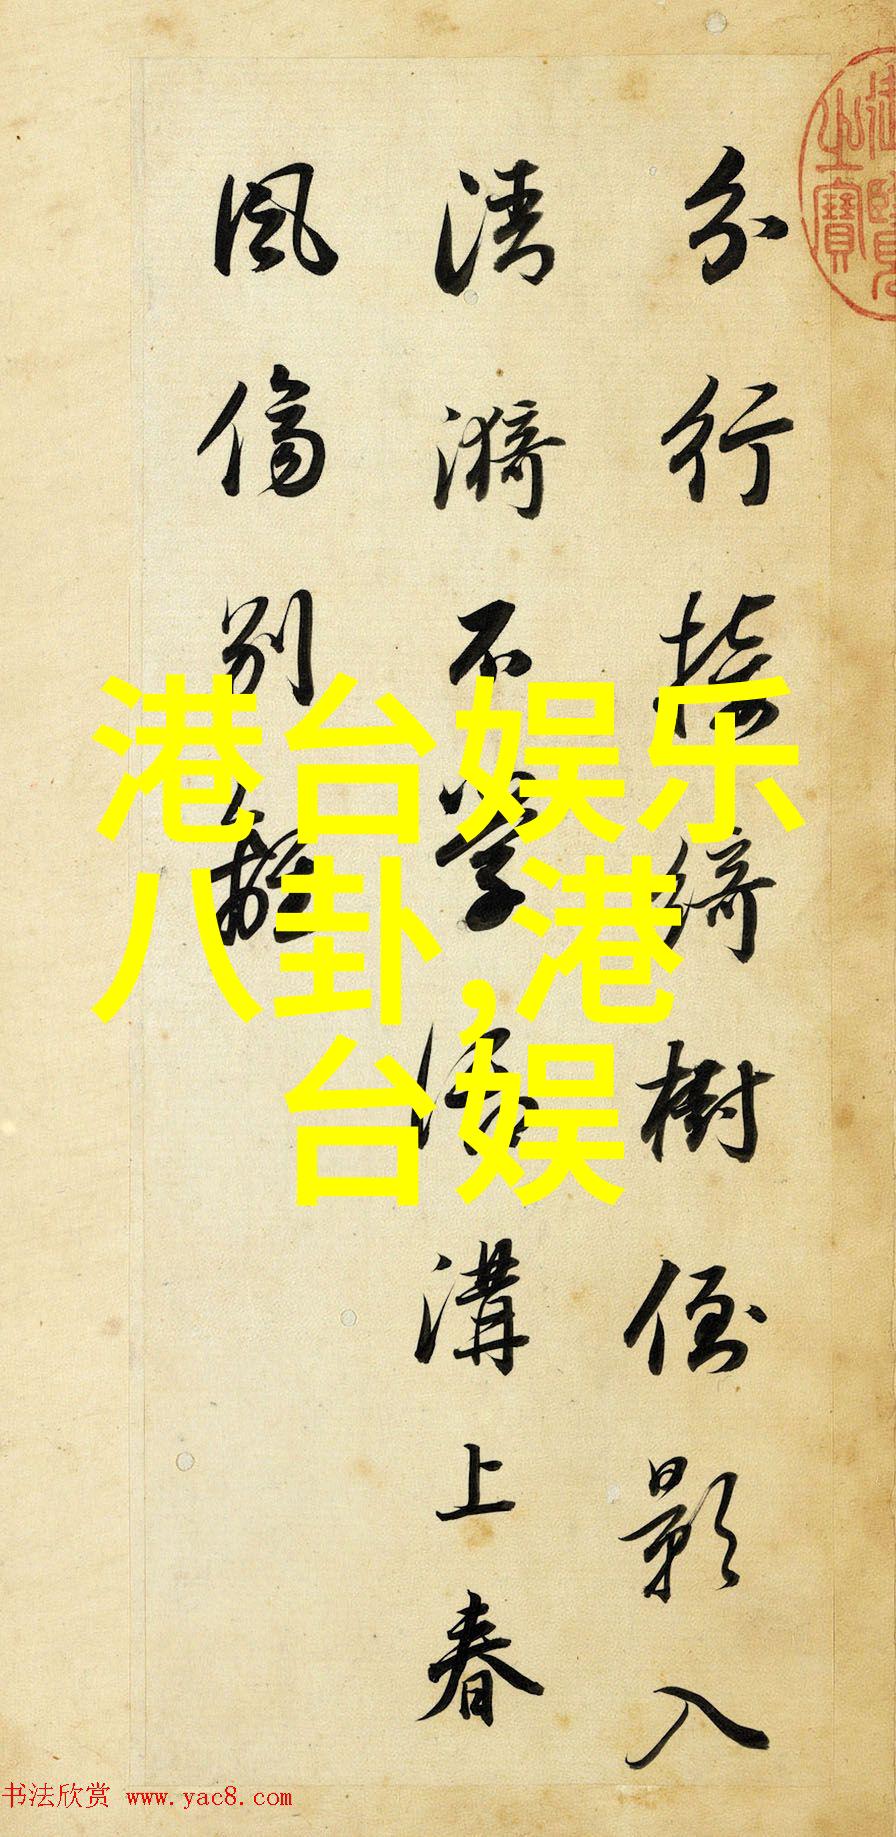 御覽
之寶
分行接綺樹倒影入
清漪不學御溝上春
風傷別離
港台娱乐
八卦,港
台娱
书法欣赏 www.yac8.com